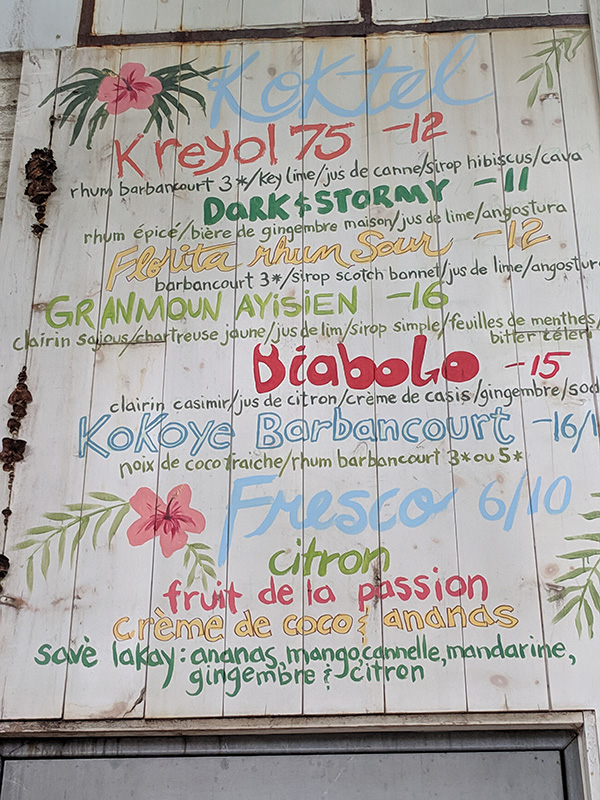 Koktel
Kreyol 75 -12
rhum barbancourt 3*/key lime/jus de canne/sirop hibiscus/cava
DARK & STORMY -11
rhum épicé/bière de gingembre maison/jus de lime/angostura
Florita rhum Sour -12
barbancourt 3*/sirop scotch bonnet/jus de lime/angostura
GRANMOUN AYISIEN -16
clairin sajous/chartreuse jaune/jus de lim/sirop simple/feuilles de menthes/
bitter céleri
Diabolo -15
clairin casimir/jus de citron/crème de casis/gingembre/sod
Kokoye Barbancourt -16/1
noix de coco fraiche/rhum barbancourt 3* ou 5*
Fresco 6/10
citron
fruit de la passion
crème de coco & ananas
savè lakay: ananas, mango, cannelle, mandarine,
gingembre & citron